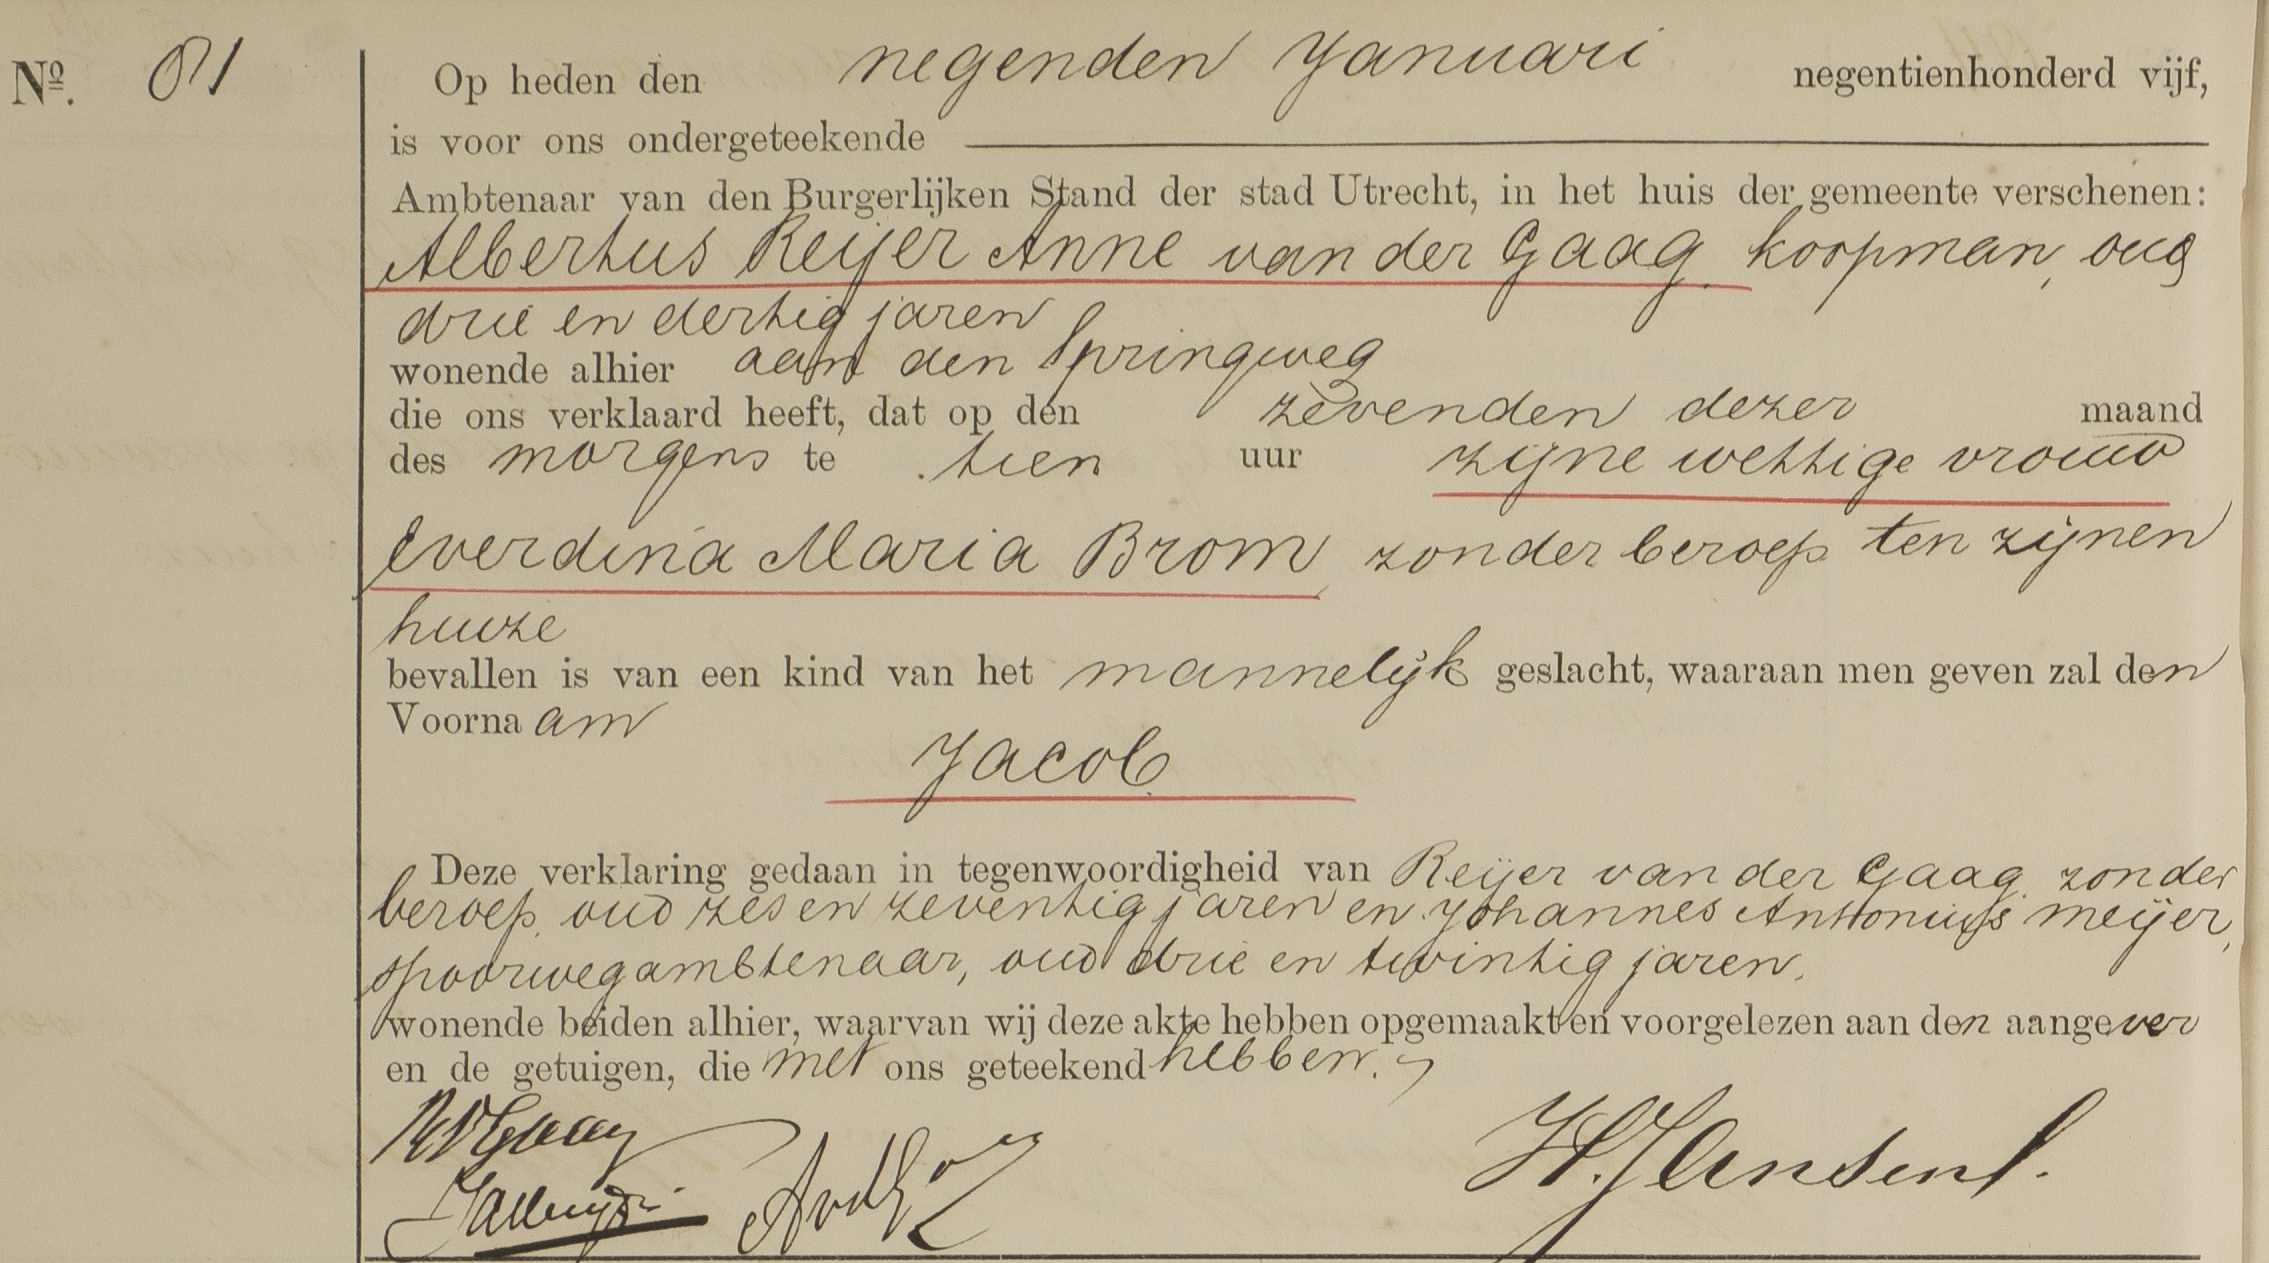 Nº. 81
Op heden den negenden Januari negentienhonderd vijf,
is voor ons ondergeteekende
Ambtenaar van den Burgerlijken Stand der stad Utrecht, in het huis der gemeente verschenen:
Albertus Reijer Anne van der Gaag, koopman, oud
drie en dertig jaren
wonende alhier aan den Springweg
die ons verklaard heeft, dat op den zevenden dezer maand
des morgens te tien uur zijne wettige vrouw
Everdina Maria Brom, zonder beroep ten zijnen
huize
bevallen is van een kind van het mannelijk geslacht, waaraan men geven zal den
Voornaam
Jacob.
Deze verklaring gedaan in tegenwoordigheid van Reijer van der Gaag, zonder
beroep, oud zes en zeventig jaren en Johannes Antonius Meijer,
spoorwegambtenaar, oud drie en twintig jaren,
wonende beiden alhier, waarvan wij deze akte hebben opgemaakt en voorgelezen aan den aangever
en de getuigen, die met ons geteekend hebben.
RvdGaag
JAMeijer AvdG
H. Jansen